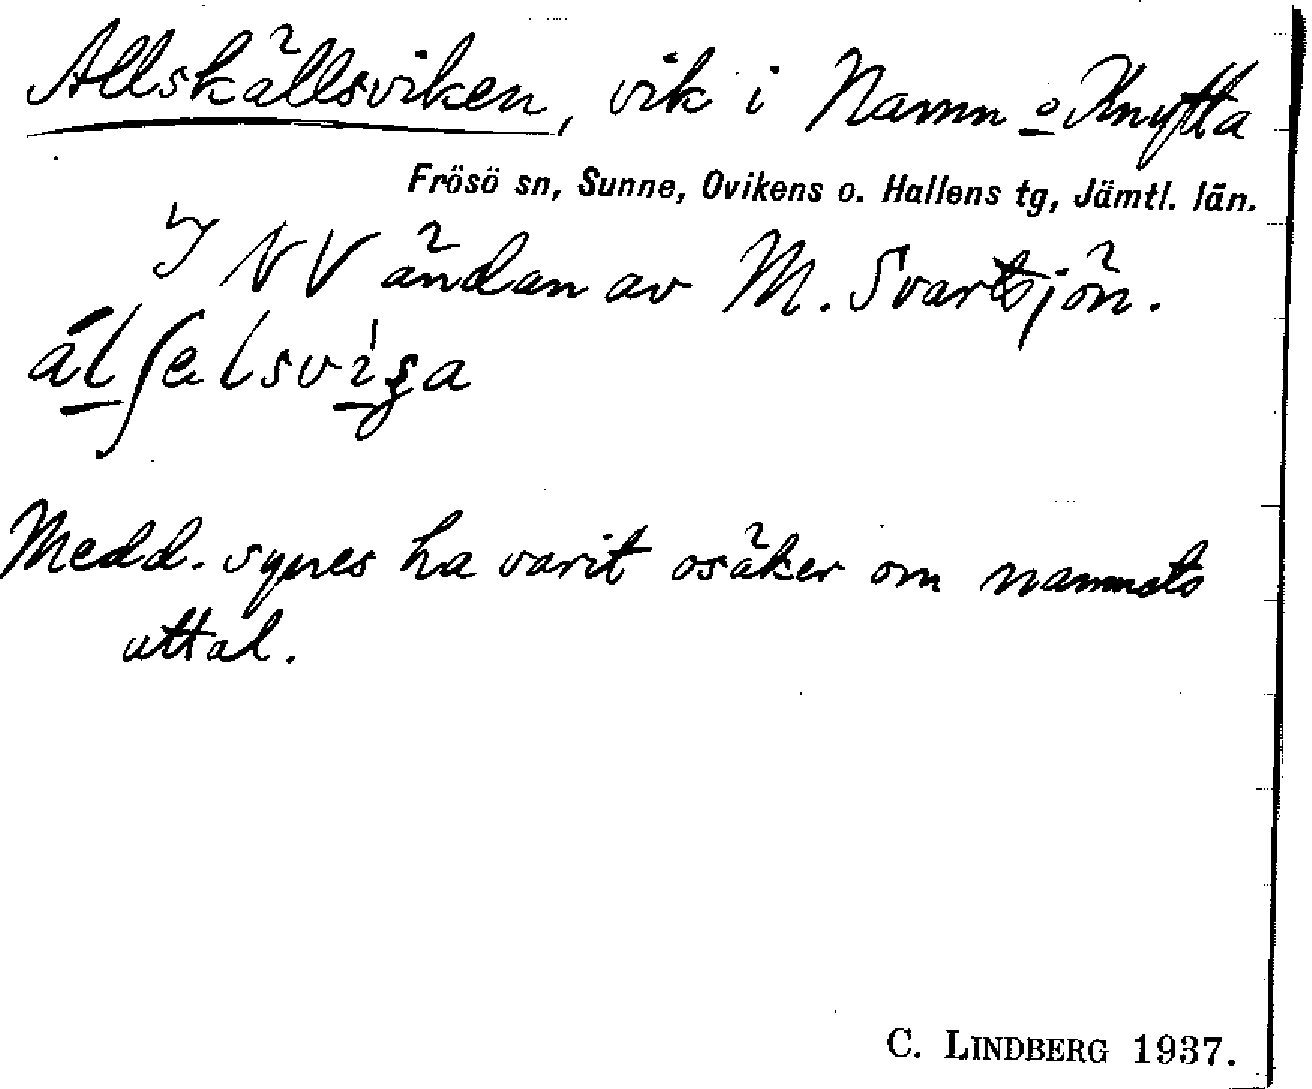 Allskällsviken, vik i Namn o Knytta
Frösö sn, Sunne, Ovikens o. Hallens tg, Jämtl. län.
I NV ändan av M. Svartsjön.
Medd. synes ha varit osäker om namnets
uttal.
C. LINDBERG 1937.